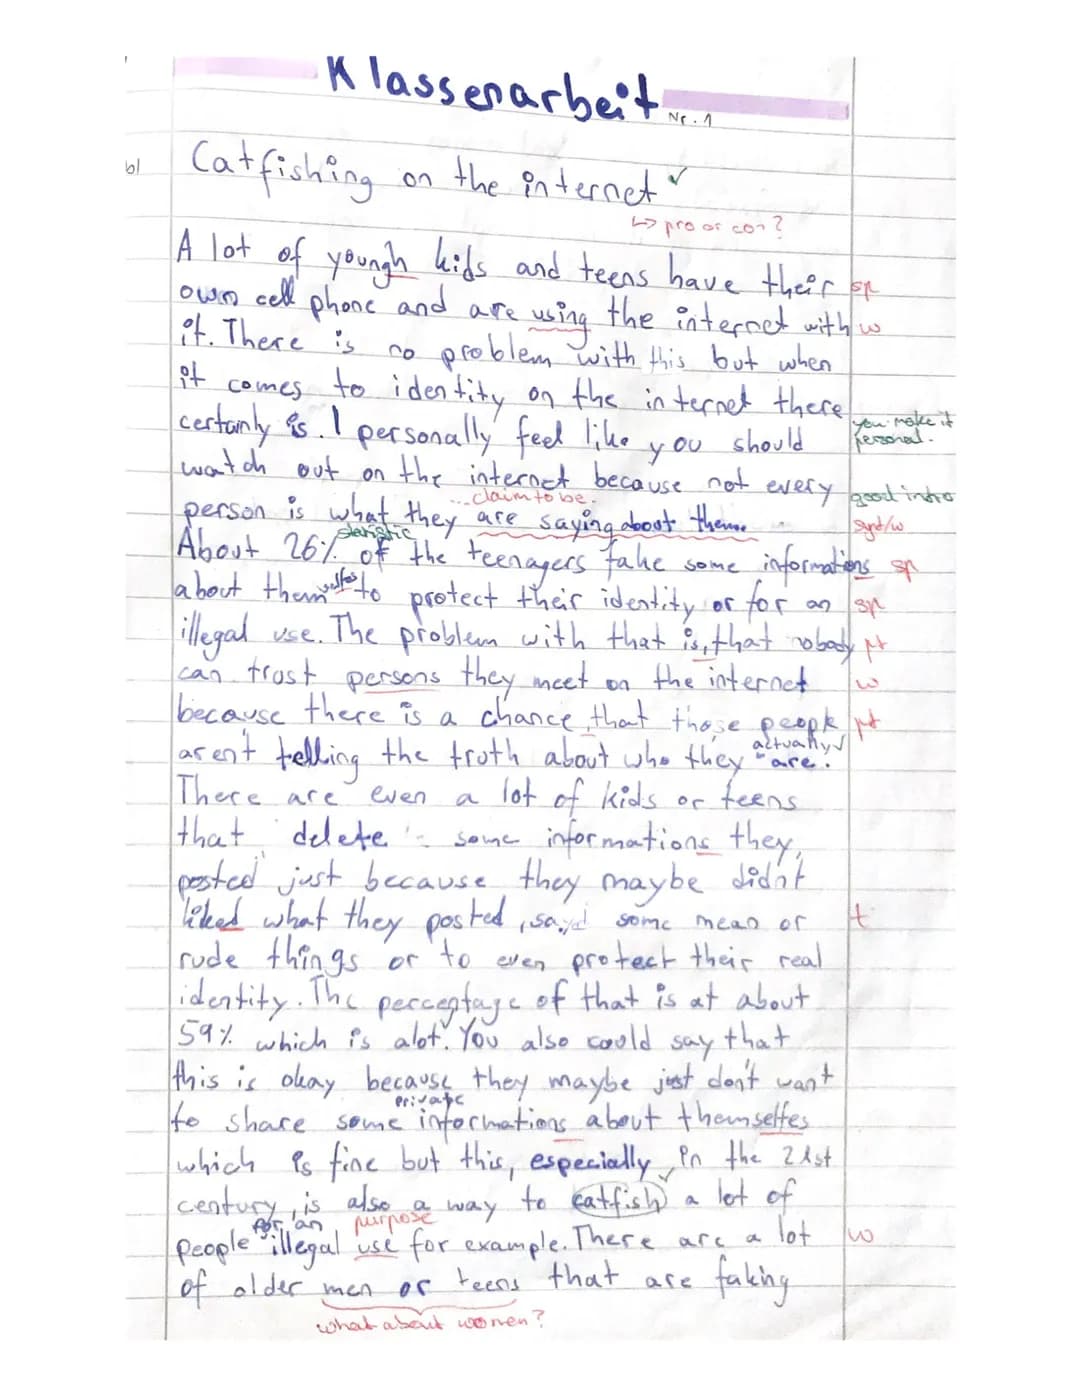 Klassenarbeit Nr. 1
b) Catfishing on the internet ✓
↳ pro or con?
A lot of youngh kids and teens have their sp
own cell phone and are using the internet with w
it. There is no problem with this but when
it comes to identity on the internet there
certainly is. I personally feel like you should you make it personal.
watch out on the internet because not every good intro
...claim to be.
person is what they are saying about them. synt/w
statistic
About 26% of the teenagers fake some informations sp
about themselfes to protect their identity or for an sp
illegal use. The problem with that is, that nobody pt
can trust persons they meet on the internet w
because there is a chance, that those people pt
actually √
aren't telling the truth about who they are.
There are even a lot of kids or teens
that delete some informations they
posted just because they maybe didn't
liked what they posted, sayd some mean or t
rude things or to even protect their real
identity. The percentage of that is at about
59% which is alot. You also could say that
this is okay because they maybe just don't want
private
to share some informations about themselfes
which is fine but this, especially in the 21st
century, is also a way to catfish ✓ a lot of
for an purpose
people illegal use for example. There are a lot w
of older men or teens that are faking
what about women?